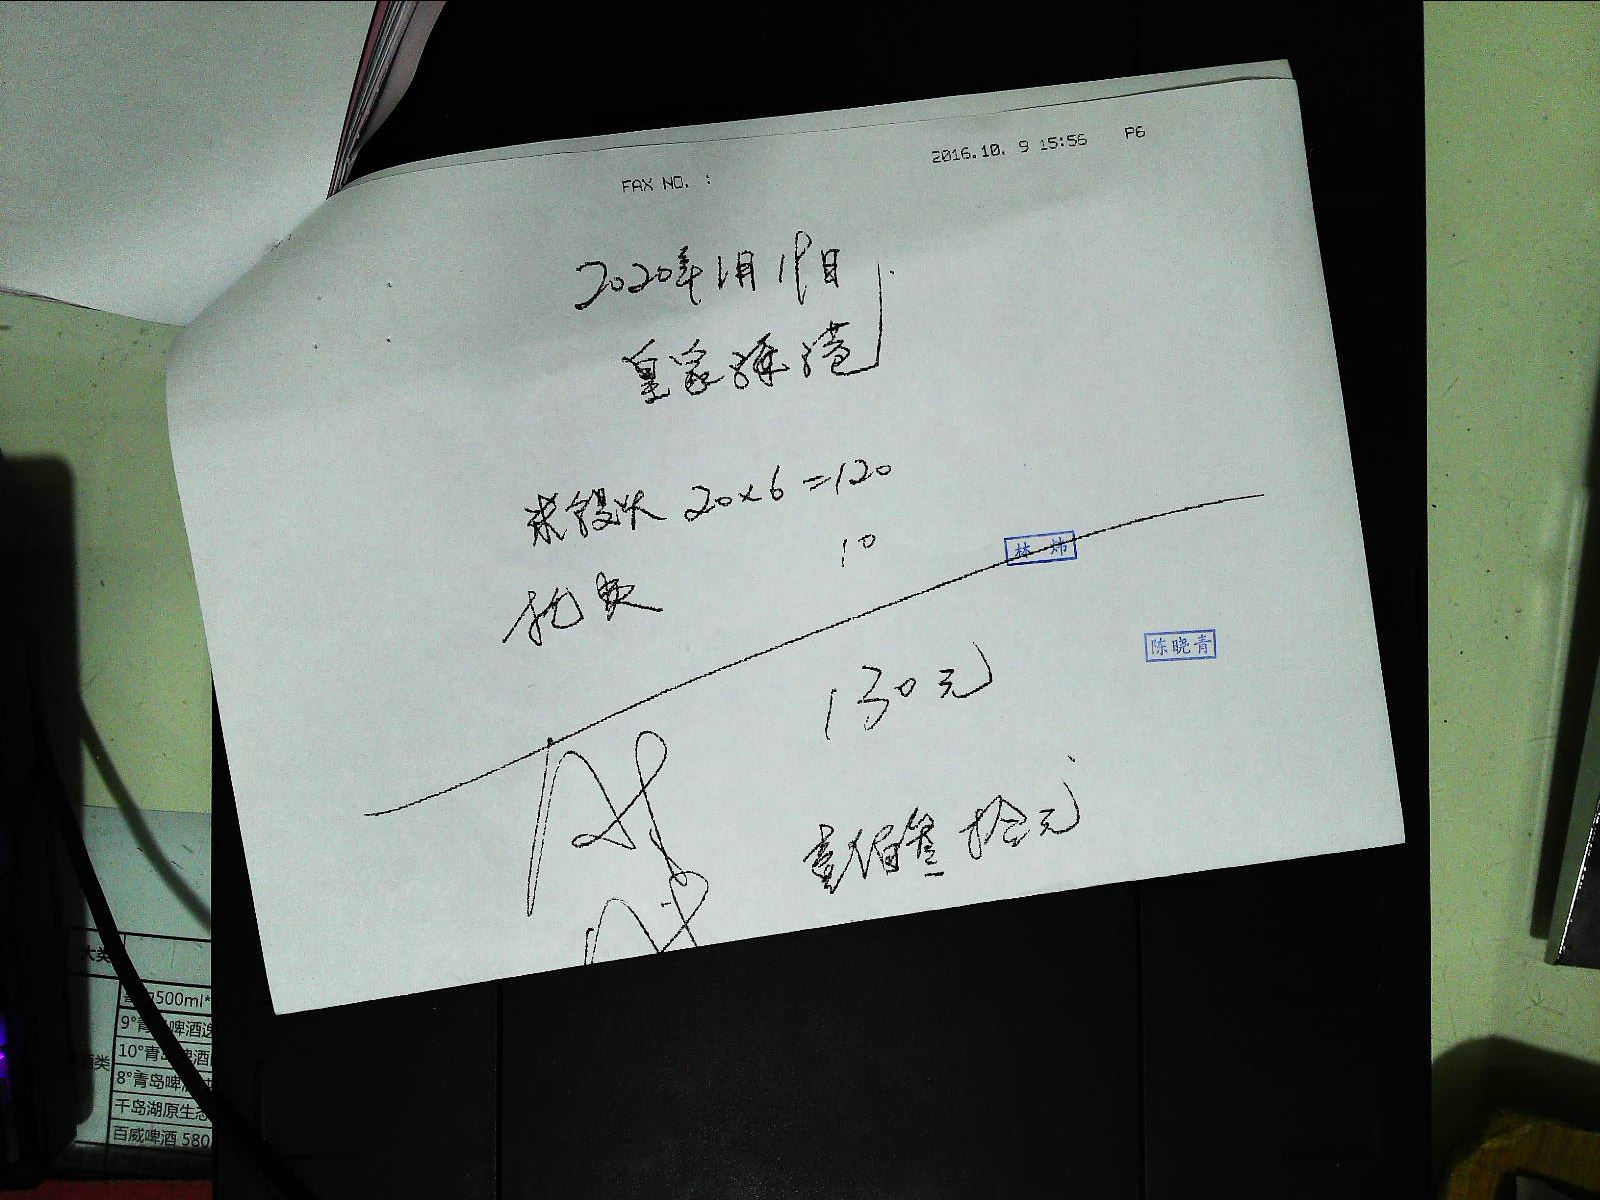 2016.10. 9 15:56 P6
FAX NO. :
2020年1月19日
皇家渌港
米馒头 20×6=120
托费 10
林炜
130元
陈晓青
壹佰叁拾元
大类
500ml*
9°青 啤酒
10°青岛啤酒
酒类
8°青岛啤
千岛湖原生态
百威啤酒 580